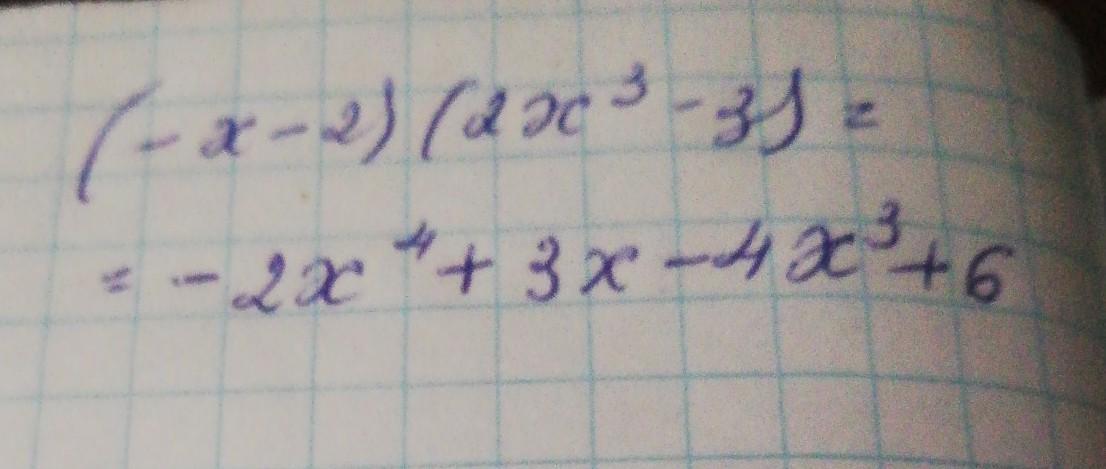 (-x-2)(2x³-3)=
=-2x⁴+3x-4x³+6